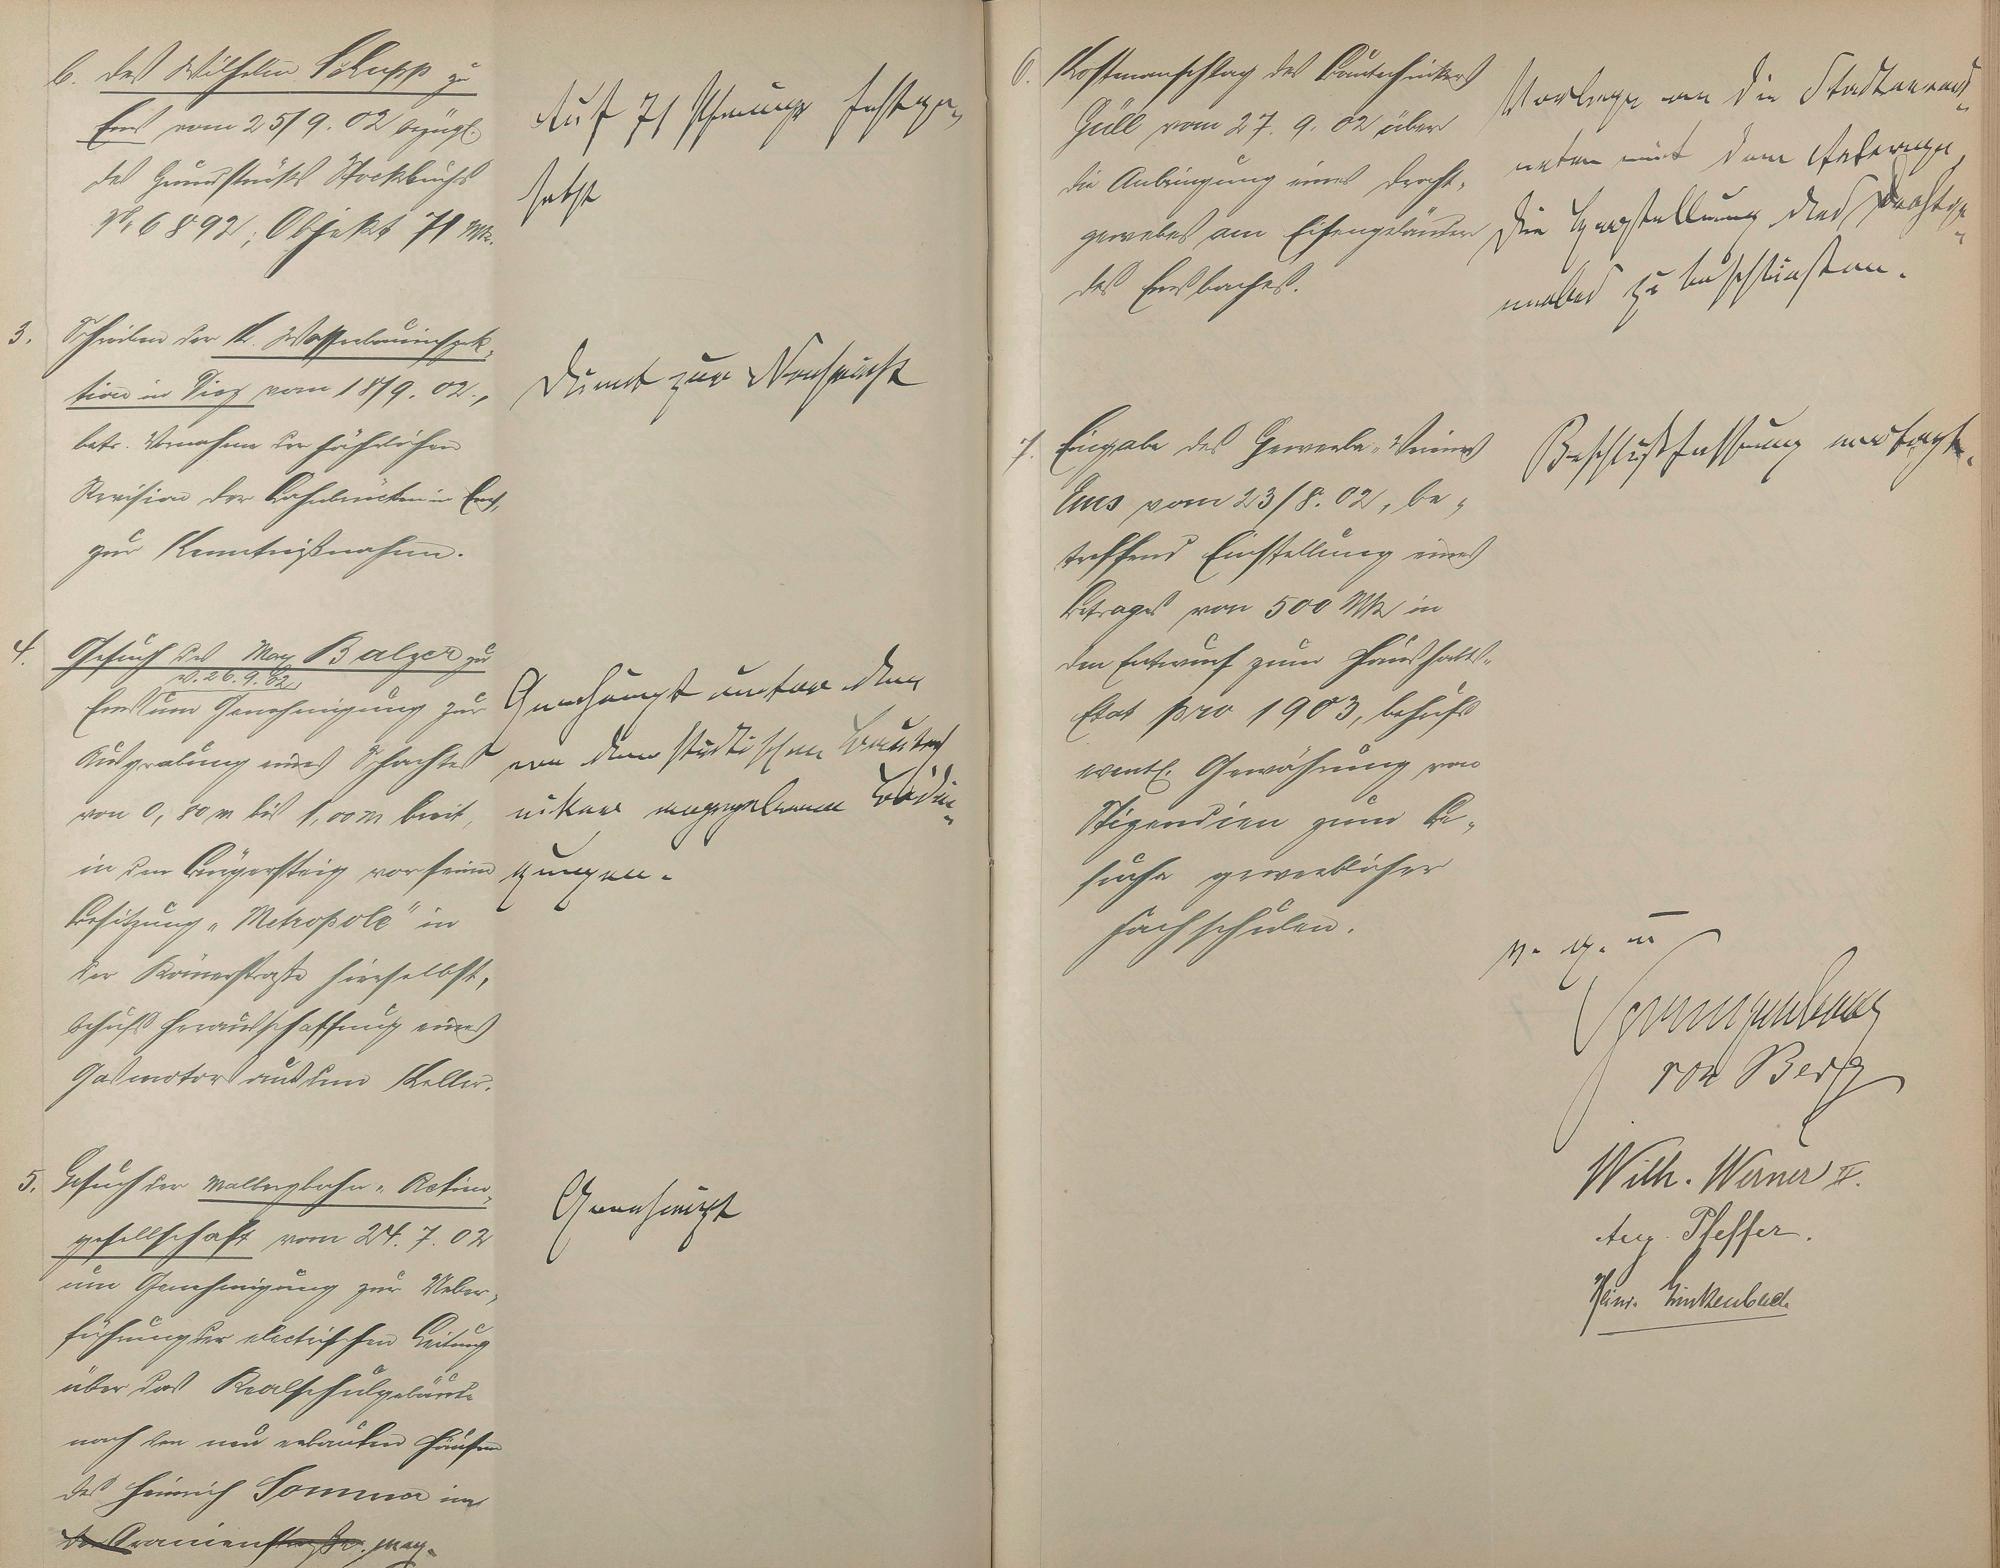 b. des Wilhelm Schupp zu
Ems vom 25/9. 02 bezügl.
des Grundstücks Stockbuchs
No 6892; Objekt 71 Mk.
Auf 71 Pfennige festge„
setzt
3. Schreiben der K. Wasserbauinspek„
tion in Diez vom 18/9. 02.,
betr. Vornahme der jährlichen
Revision der Lahnbrücken in Ems,
zur Kenntnißnahme.
Dient zur Nachricht
4. Gesuch des Max Balzer zu
v. 26. 9. 02
Ems um Genehmigung zur
Ausgrabung eines Schachtes
von 0,80 m bis 1,00 m breit,
in dem Bürgersteig vor seiner
Besitzung „Metropole" in
der Römerstraße hierselbst,
behufs Herausschaffung eines
Gasmotors aus dem Keller.
Genehmigt unter den
von dem städtischen Bautech
niker angegebenen Bedin„
gungen.
5. Gesuch der Malbergbahn„Actien„
gesellschaft vom 24. 7. 02
um Genehmigung zur Ueber„
führung der electrischen Leitung
über das Realschulgelände
nach den neu erbauten Häusern
des Heinrich Sommer in
der Oranienstraße.
Genehmigt
6. Kostenanschlag des Bautechnikers
Güll vom 27. 9. 02 über
die Anbringung eines Draht„
gewebes am Eisengeländer
des Emsbaches.
Vorlage an die Stadtverord„
neten mit dem
die Herstellung des Drahtge„
webes zu beschließen.
7. Eingabe des Gewerbe„Vereins
Ems vom 23/8. 02, be„
treffend Einstellung eines
Betrages von 500 Mk in
den Entwurf zum Haushalts„
Etat pro 1903, behufs
eventl. Gewährung von
Stipendien zum Be„
suche gewerblicher
Fachschulen.
Beschlußfassung vertagt.
v. g. u
Spangenberg
von Berg
Wilh. Werner II.
Aug. Pfeffer.
Heinr. Linkenbach